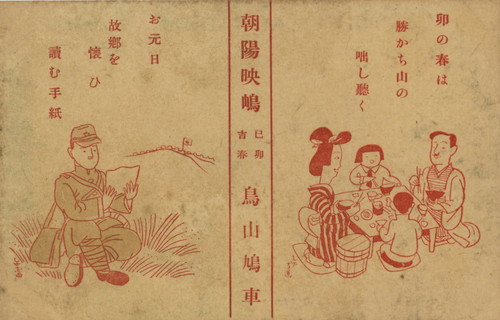 卯の春は
勝かち山の
咄し聴く
朝陽映嶋
己卯
吉春
鳥山鳩車
お元日
故鄕を
懐ひ
讀む手紙